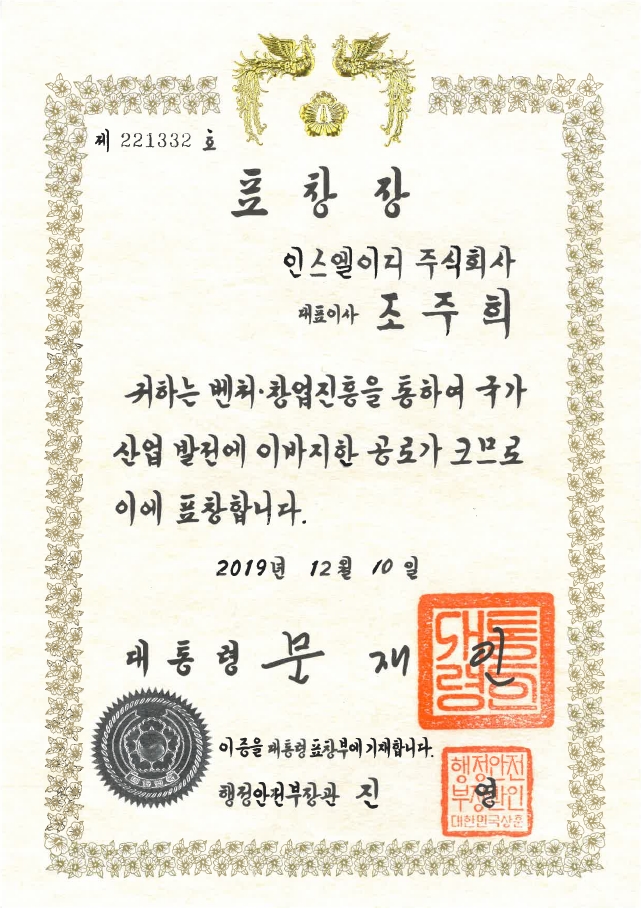 제 221332 호
표 창 장
인스엘이디 주식회사
대표이사 조 주 희
귀하는 벤처·창업진흥을 통하여 국가
산업 발전에 이바지한 공로가 크므로
이에 표창합니다.
2019년 12월 10일
대 통 령 문 재 인
대통령의인
이 증을 대통령 표창부에 기재합니다.
행정안전부장관 진 영
행정안전
부장관인
대한민국상훈